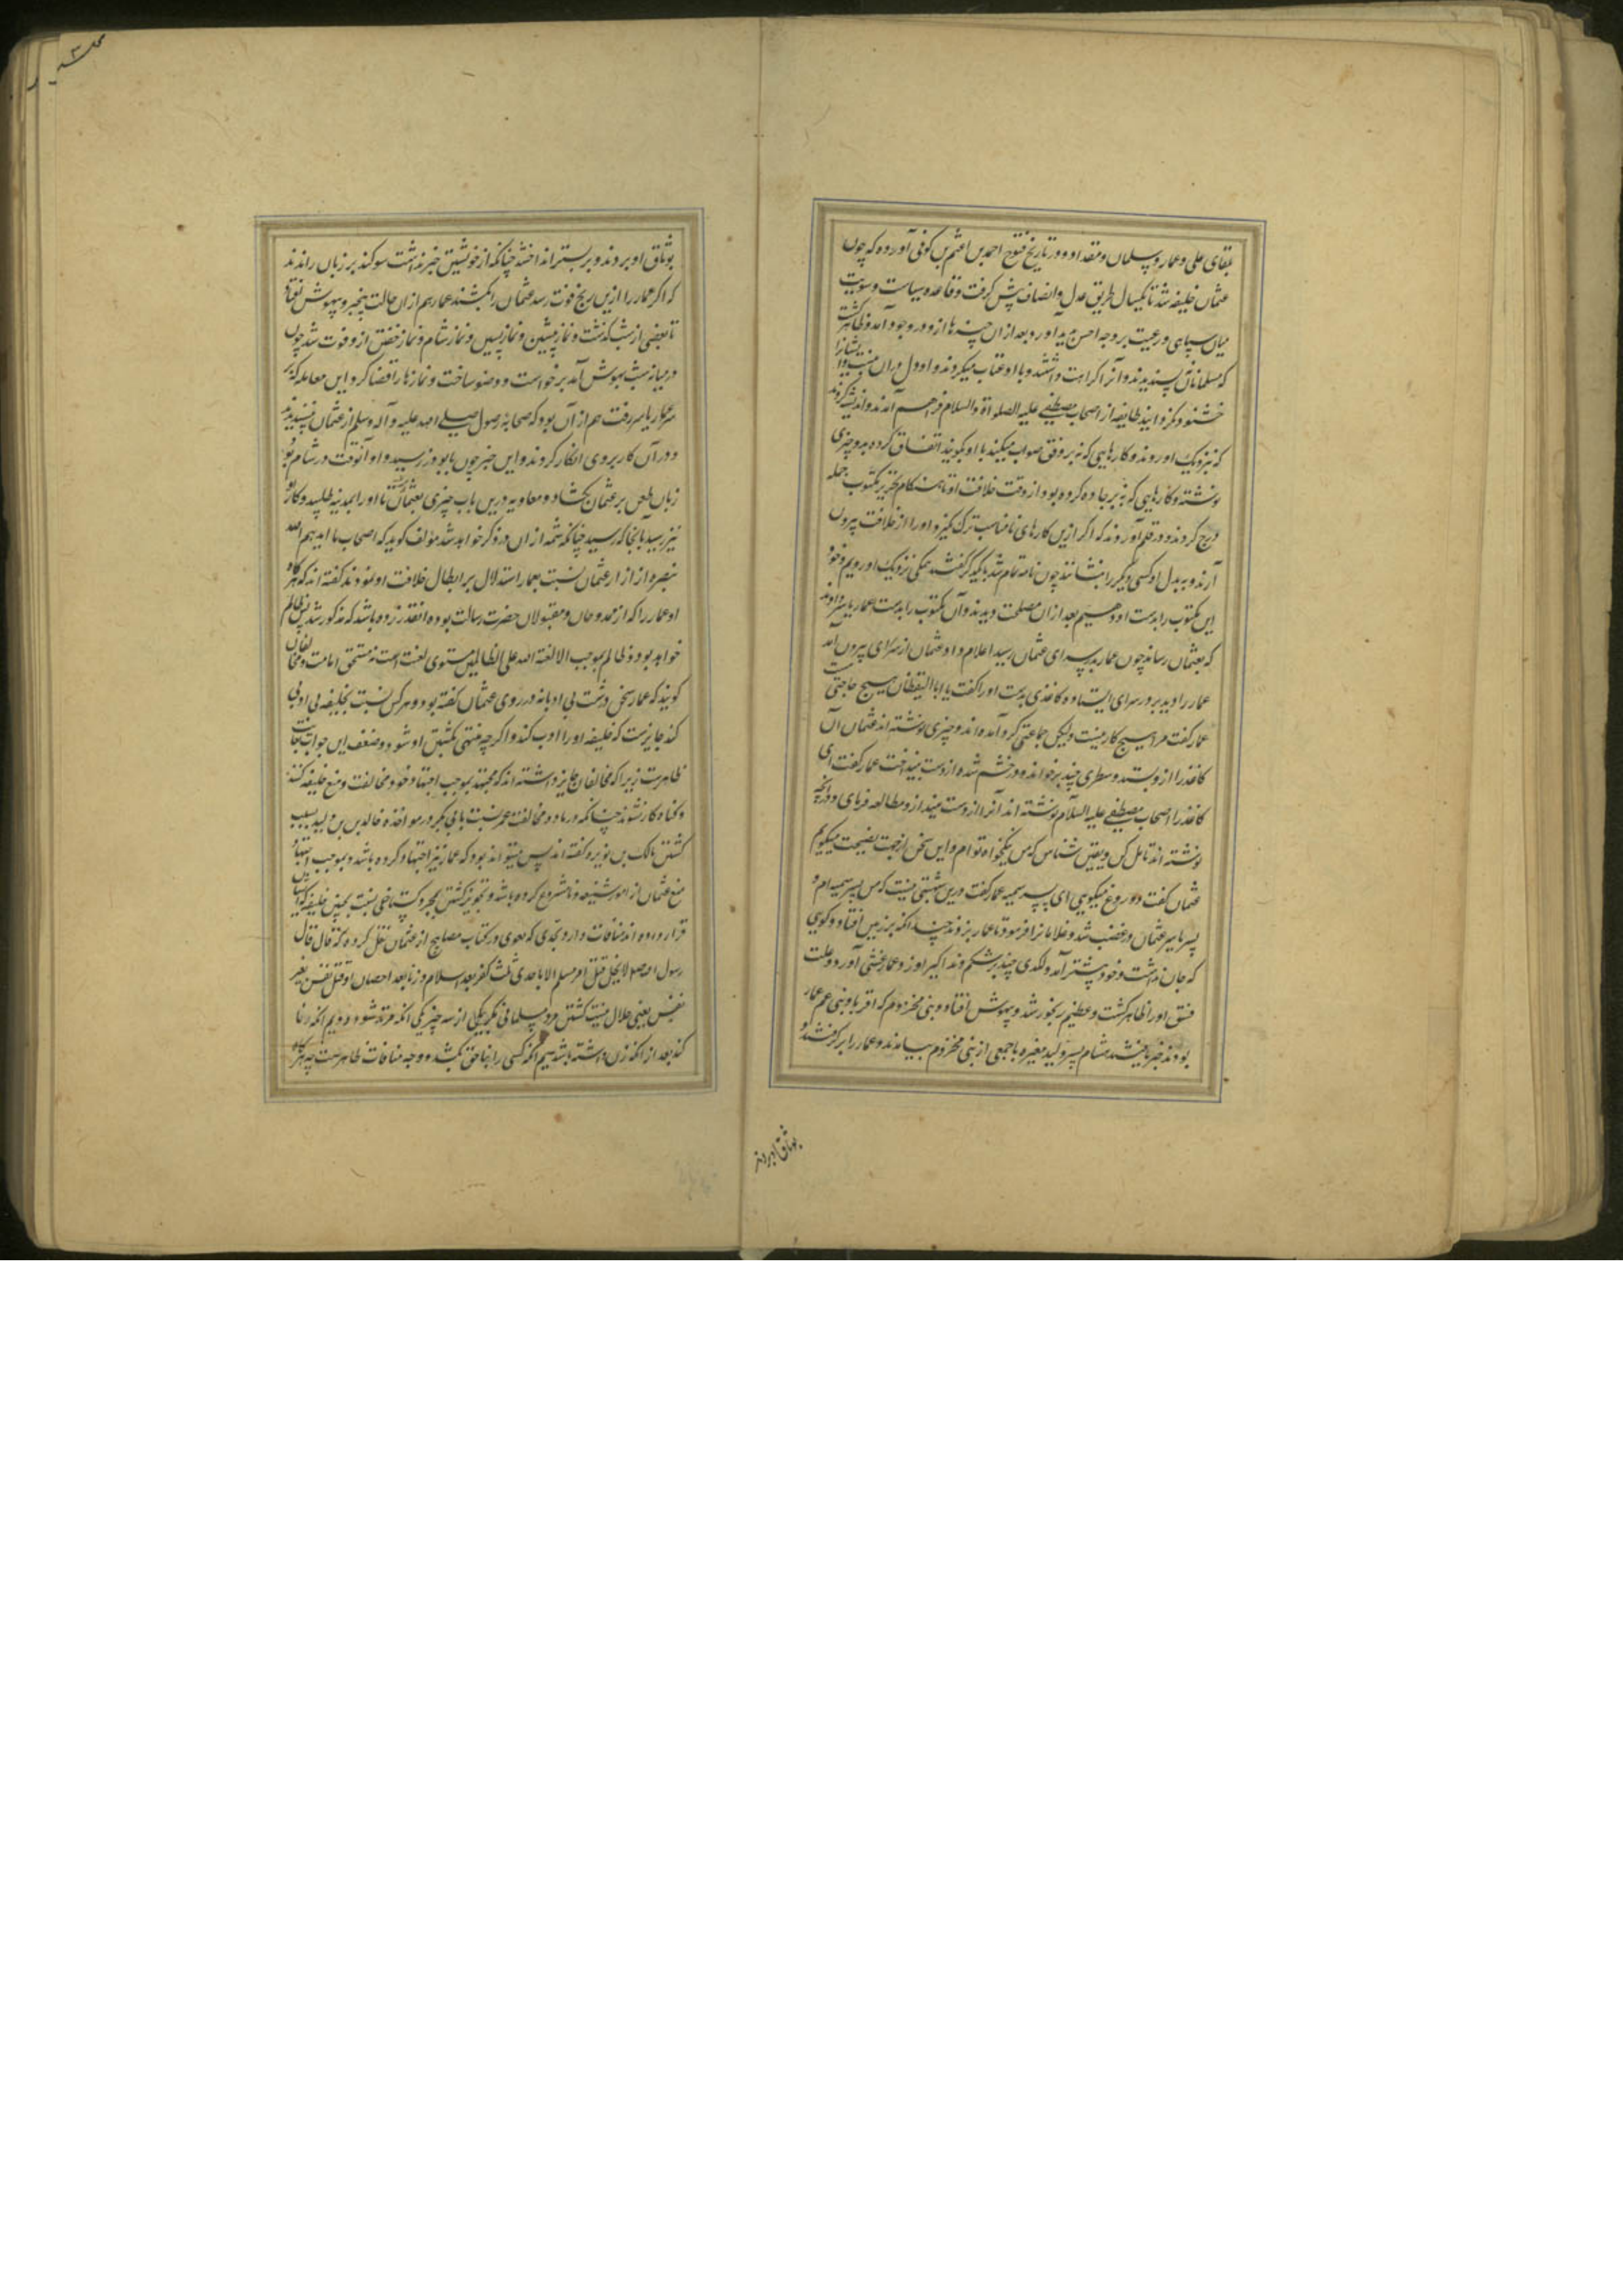 بلقای علی و عمار و سلمان و مقداد و در تاریخ فتوح احمد بن اعثم بن کوفی آورده که چون
عثمان خلیفه شد تا یکسال طریق عدل و انصاف پیش گرفت و قاعده سیاست و سویت
میان سپاهی و رعیت بر وجه احسن پدید آورد بعد از آن چیزها ازو در وجود آمد و ظاهر گشت
که مسلمانان نپسندیدند و آنرا کراهت داشتند و با او عتاب میکردند و او دل در آن
خشنود نکردانید طایفه از اصحاب مصطفی علیه الصلوة والسلام فراهم آمدند و اندیشه کردند
که نزدیک او روند و کارهایی که نه بر وفق صواب میکند با او بگویند اتفاق کرده برو چیزی
نوشته و کارهایی که نه بر جاده کرده بود از وقت خلافت او تا هنگام تحریر مکتوب جمله
درج کردند و در قلم آوردند که اگر ازین کارهای نامناسب ترک نگیرد او را از خلافت بیرون
آرند و ببدل او کسی دیگر را بنشانند چون نامه تمام شد با یکدیگر گفتند همکی نزدیک او رویم و خود
این مکتوب را بدست او دهیم بعد از آن مصلحت دیدند و آن مکتوب را بدست عمار یاسر دادند
که بعثمان رساند چون عمار بدر سرای عثمان رسید اعلام داد عثمان از سرای بیرون آمد
عمار را دید بر در سرای ایستاده و کاغذی بدست او را گفت یا ابا الیقظان هیچ حاجتی
عمار گفت مرا هیچ کار نیست ولیکن جماعتی گرد آمده اند و چیزی نوشته اند عثمان آن
کاغذ را ازو بستد و سطری چند بر خواند و در خشم شده از دست بینداخت عمار گفت ای
کاغذ را اصحاب مصطفی علیه السلام نوشته اند آنرا از دست مینداز و مطالعه فرمای و در آنچه
نوشته اند تامل کن و یقین شناس که من نیکخواه توام و این سخن از جهت نصیحت میگویم
عثمان گفت دروغ میگویی ای پسر سمیه عمار گفت درین شبهتی نیست که من پسر سمیه ام و
پسر یاسر عثمان در غضب شد و غلامانرا فرمود تا عمار بزدند چندانکه بر زمین افتاد و گویی
که جان نداشت و خود پیشتر آمد و لگدی چند بر شکم و مذاکیر او زد و عمار غشی آورد و علت
فتق او را ظاهر گشت و عظیم رنجور شد و بیهوش افتاد و بنی مخزوم که اقربا و بنی عم عمار
بودند خبر یافتند هشام پسر ولید مغیره با جمعی از بنی مخزوم بیامدند و عمار را بر گرفتند و
بوثاق او بردند
بوثاق او بردند و بر بستر انداختند چنانکه از خویشتن خبر نداشت سوگند بر زبان راندند
که اگر عمار را ازین رنج فوت رسد عثمان را بکشند عمار هم از آن حالت بیخبر و بیهوش افتاد
تا بعضی از شب گذشت و نماز پیشین و نماز پسین و نماز شام و نماز خفتن ازو فوت شد چون
در میانه شب بهوش آمد برخواست و وضو ساخت و نمازها را قضا کرد و این معامله که بر
سر عمار یاسر رفت هم از آن بود که صحابه رسول صلی الله علیه و آله وسلم از عثمان نپسندیدند
و در آن کار بر وی انکار کردند و این خبر چون بابوذر رسید و او آنوقت در شام بود
زبان طعن بر عثمان بکشاد و معاویه درین باب چیزی بعثمان نبشت تا او را بمدینه طلبید و کار او
نیز رسید آنجا که رسید چنانکه شمه از آن در ذکر خواهد شد مولف گوید که اصحاب ما ایدهم الله
بنصره از آزار عثمان نسبت بعمار استدلال بر ابطال خلافت او نموده اند گفته اند که هر گاه
او عمار را که از ممدوحان و مقبولان حضرت رسالت بوده آنقدر زده باشد که مذکور شد پس ظالم
خواهد بود و ظالم بموجب الا لعنة الله علی الظالمین مستوی لعنت است نه مستحق امامت و مخالفان
گویند که عمار سخن درشت بی ادبانه در روی عثمان گفته بود و هر کس نسبت بخلیفه بی ادبی
کند جایز است که خلیفه او را ادب کند و اگر چه منتهی بکشتن او شود و ضعف این جواب بغایت
ظاهرست زیرا که مخالفان جایز داشته اند که مجتهد بموجب اجتهاد خود مخالفت و منع خلیفه کند
و گناه کار نشود چنانکه در ماده مخالفت عمر نسبت بابی بکر در مواخذه خالد بن ولید بسبب
کشتن مالک بن نویره گفته اند پس میتواند بود که عمار نیز اجتهاد کرده باشد و بموجب اجتهاد
منع عثمان از امور شنیعه و نامشروع کرده باشد و تجویز کشتن بمجرد گستاخی نسبت بچنین خلیفه که ایشان
قرار داده اند منافات دارد بحدی که بغوی در کتاب مصابیح از عثمان نقل کرده که قال قال
رسول الله صلعم لا یحل قتل امرء مسلم الا باحدی ثلث کفر بعد اسلام و زنا بعد احصان او قتل نفس بغیر
نفس یعنی حلال نیست کشتن مرد مسلمانی مگر بیکی از سه چیز یکی آنکه مرتد شود دویم آنکه زنا
کند بعد از آنکه زن داشته باشد سیم آنکه کسی را بناحق بکشد و وجه منافات ظاهرست چه هر گاه